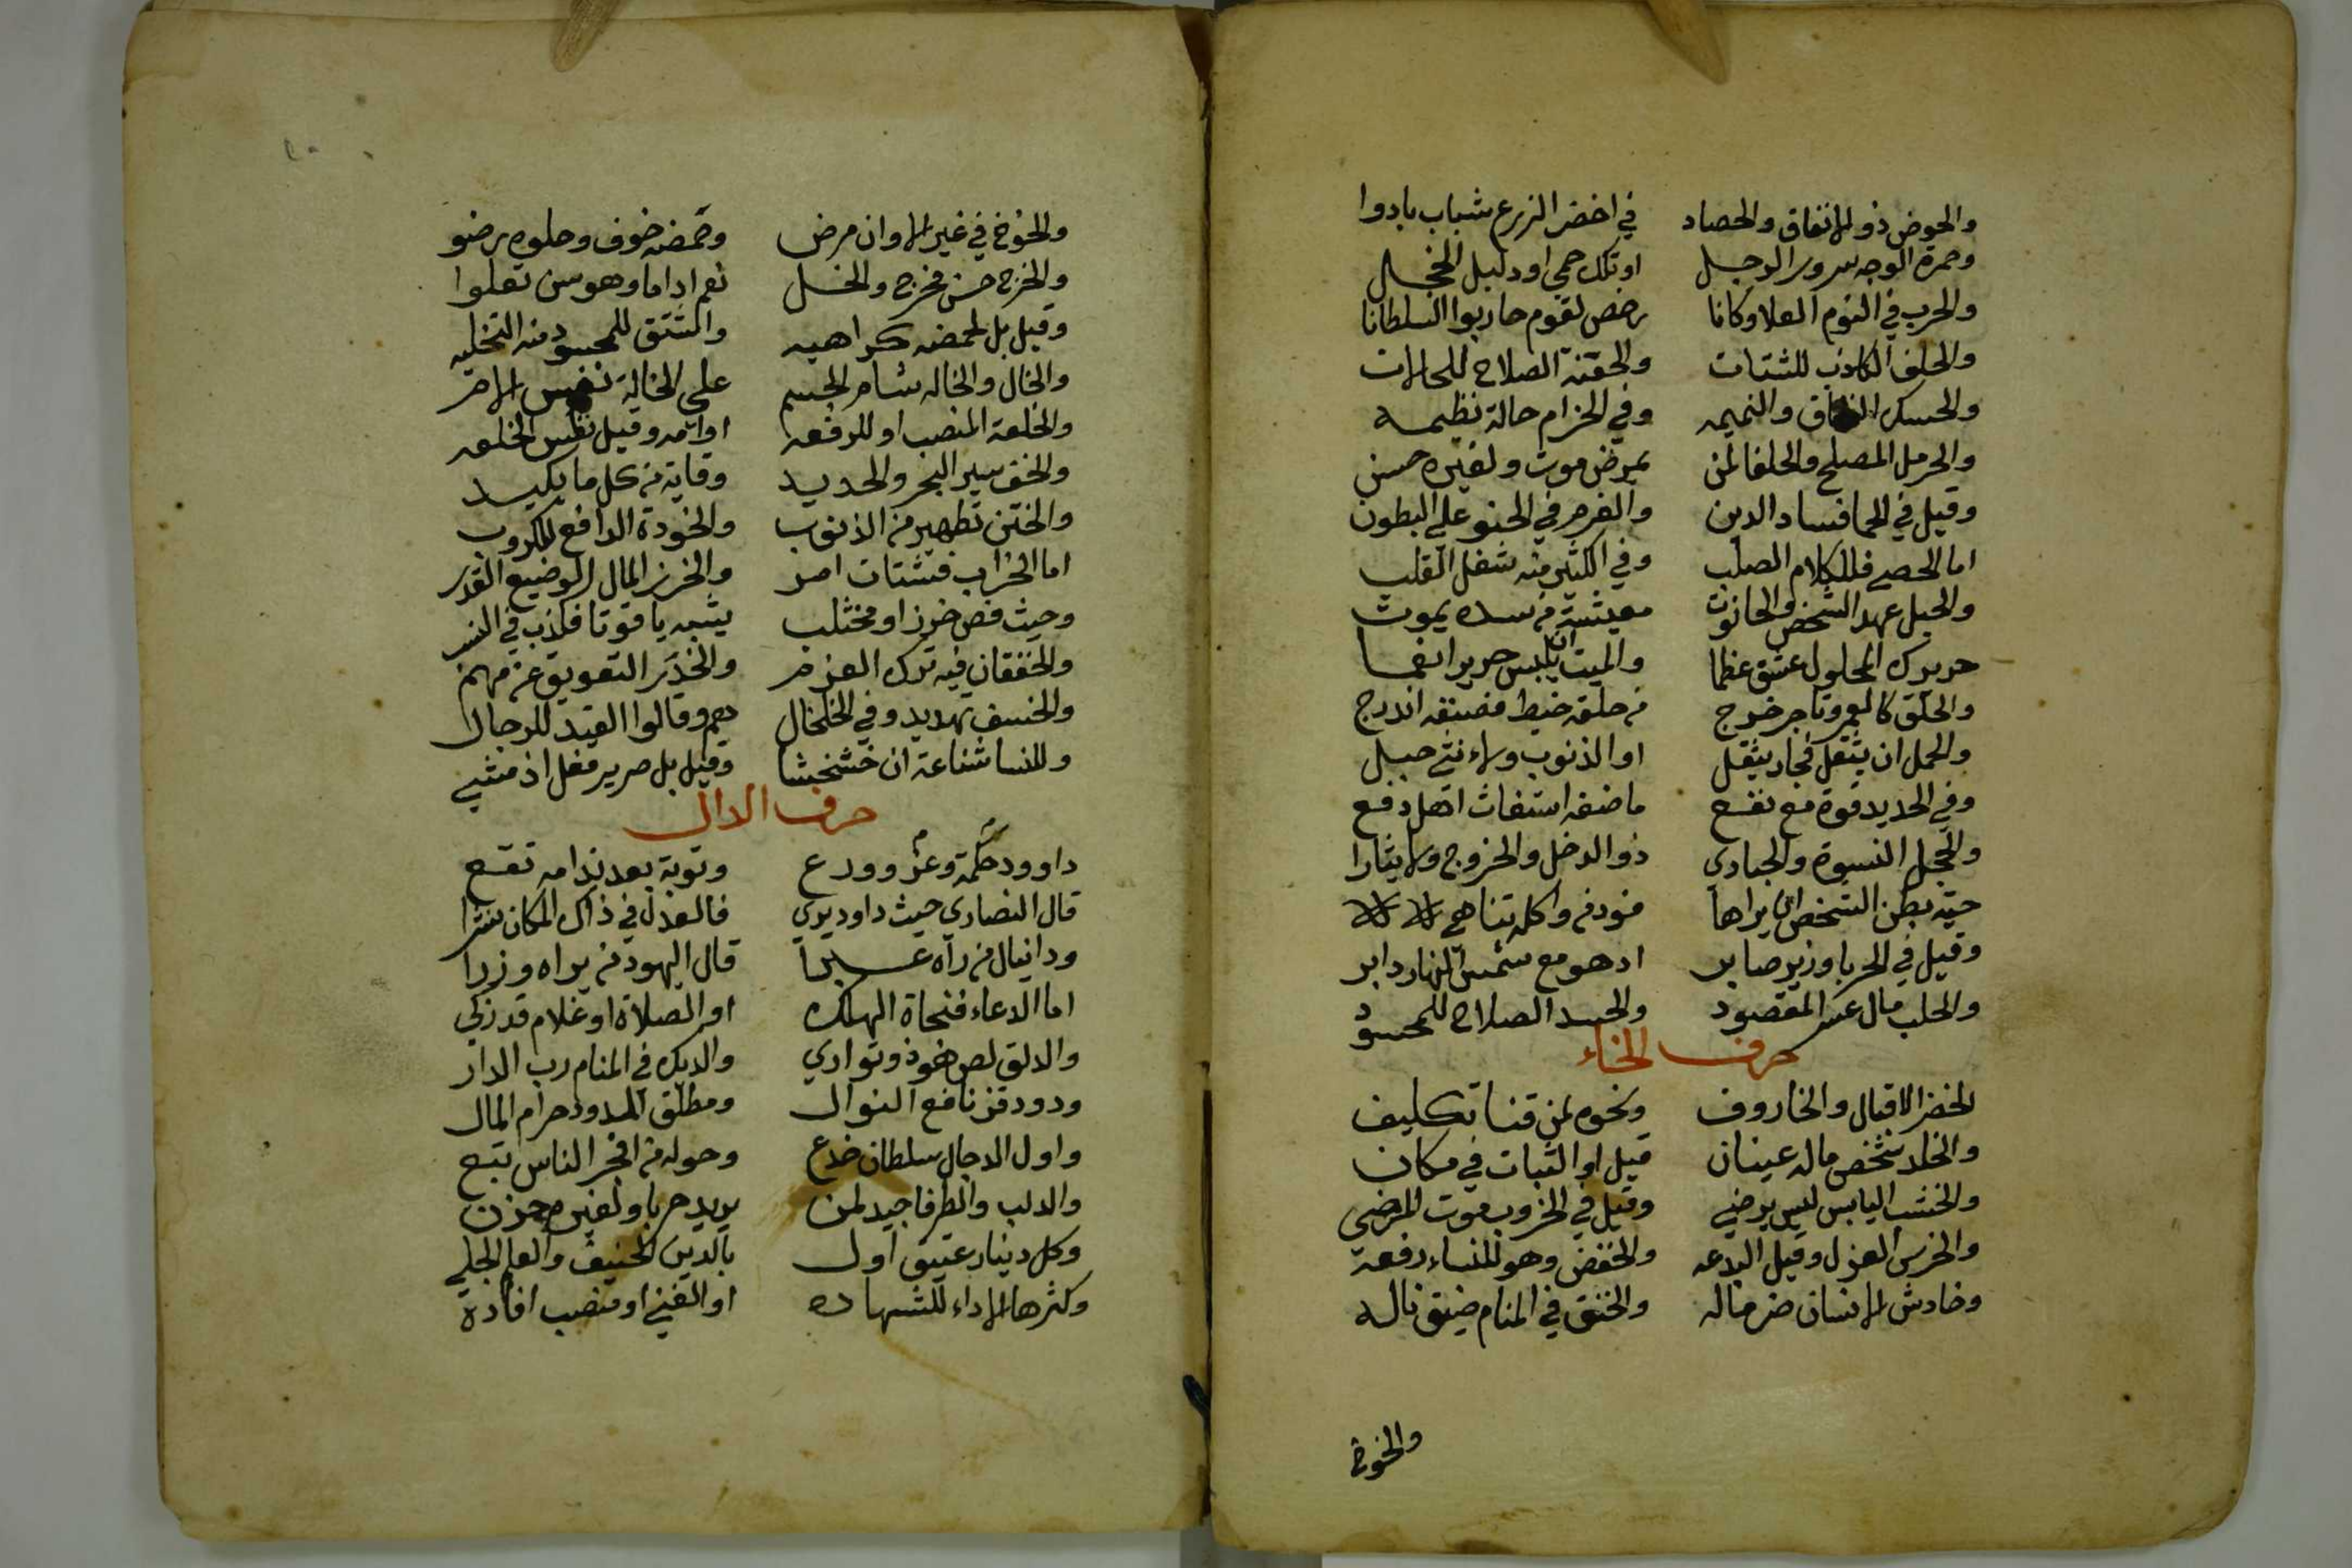 والحوض ذو الانفاق والحصاد في اخضر الزرع شباب بادوا
وحمرة الوجه سرور الوجل او تلك حمى او دليل الخجل
والحرب في النوم الغلا وكانا رخص لقوم حاربوا السلطانا
والحلف الكاذب للشتات والحقنة الصلاح للحالات
والحسك النفاق والنميمه وفي الحزام حالة نظيمه
والحرمل المصلح والحلفا لمن بمرض موت ولغيره حسن
وقيل في الحما فساد الدين والغرم في الحنو على البطون
اما الحصى فللكلام الصلب وفي الكثير منه شغل القلب
والحبل عهد الشخص والحانوت معيشة من سده يموت
حريرك المحلول عشق عظما والميت ان يلبس حريرا نعما
والحلق كالعمر وتاجر خرج من حلقه خيط فضنقه اندرج
والحمل ان يثقل فجار يثقل او الذنوب ولانثى حبل
وفي الحديد قوة مع نفع ما ضنعه استغاث اهل دفع
والحجل النسوة والحبادى ذو الدخل والخروج ولا يثارا
حية بطن الشخص ان يراها من ودنه واكله تناهى
وقيل في الحربا وزير صابر اذ هو مع شمس النهار داير
والحلب مال عسر المقصود والحسد الصلاح للمحسود
حرف الخاء
الخضر الاقبال والخاروف ونحوه لمن قنا تكليف
والخلد شخص ماله عينان قيل او الثبات في مكان
والخشب اليابس ليس يرضي وقيل في الخروب موت المرضى
والخرس العزل وقيل البدعه والخفض وهو للنساء رفعة
وخادش الانسان ضر ماله والخنق في المنام ضيق ناله
والخوخ
والخوخ في غير الاوان مرض وحمضه خوف وحلوه رضو
والخرج حسن مخرج والخل نعم اداما وهو من تعلوا
وقيل بل لحمضه كراهيه والمشتق للمحسود منه التخليه
والخال والخاله شام الجسم على الخالة نفس الامر
والخلعة المنصب او للرفعه او امه وقيل نفس الخلعه
والخف سير البحر والحديد وقاية من كل ما يكيد
والختن تطهير من الذنوب والخودة الدافع للكروب
اما الخراب فشتات امر والخرز المال الوضيع القدر
وحيث فص خرز او مخشلب يشبه ياقوتا فكذب في النسب
والخفقان فيه ترك العزم والخدر التعويق عن مهم
والخسف تهديد وفي الخلخال هم وقالوا القيد للرجال
وللنسا شناعة ان خشخشا وقيل بل صرير فعل اذ مشي
حرف الدال
داوود حكمة وعز وورع وتوبة بعد ندامه تقع
قال النصارى حيث داود يرى فالعدل في ذاك المكان نشرا
ودانيال من رآه عبرا قال اليهود من يراه وزرا
اما الدعاء فنجاة الهلك او الصلاة او غلام قد زكى
والدلق لص نفوذ وتوارى والديك في المنام رب الدار
ودود قز نافع النوال ومطلق الدود حرام المال
واول الدجال سلطان خدع وحوله من افجر الناس تبع
والدلب والطرفا جيد لمن يريد حربا ولغيره حزن
وكل دينار عتيق اول بالدين الحنيف والعلم الجلي
وكثرها الاداء للشهاده او الغنى او منصب افاده